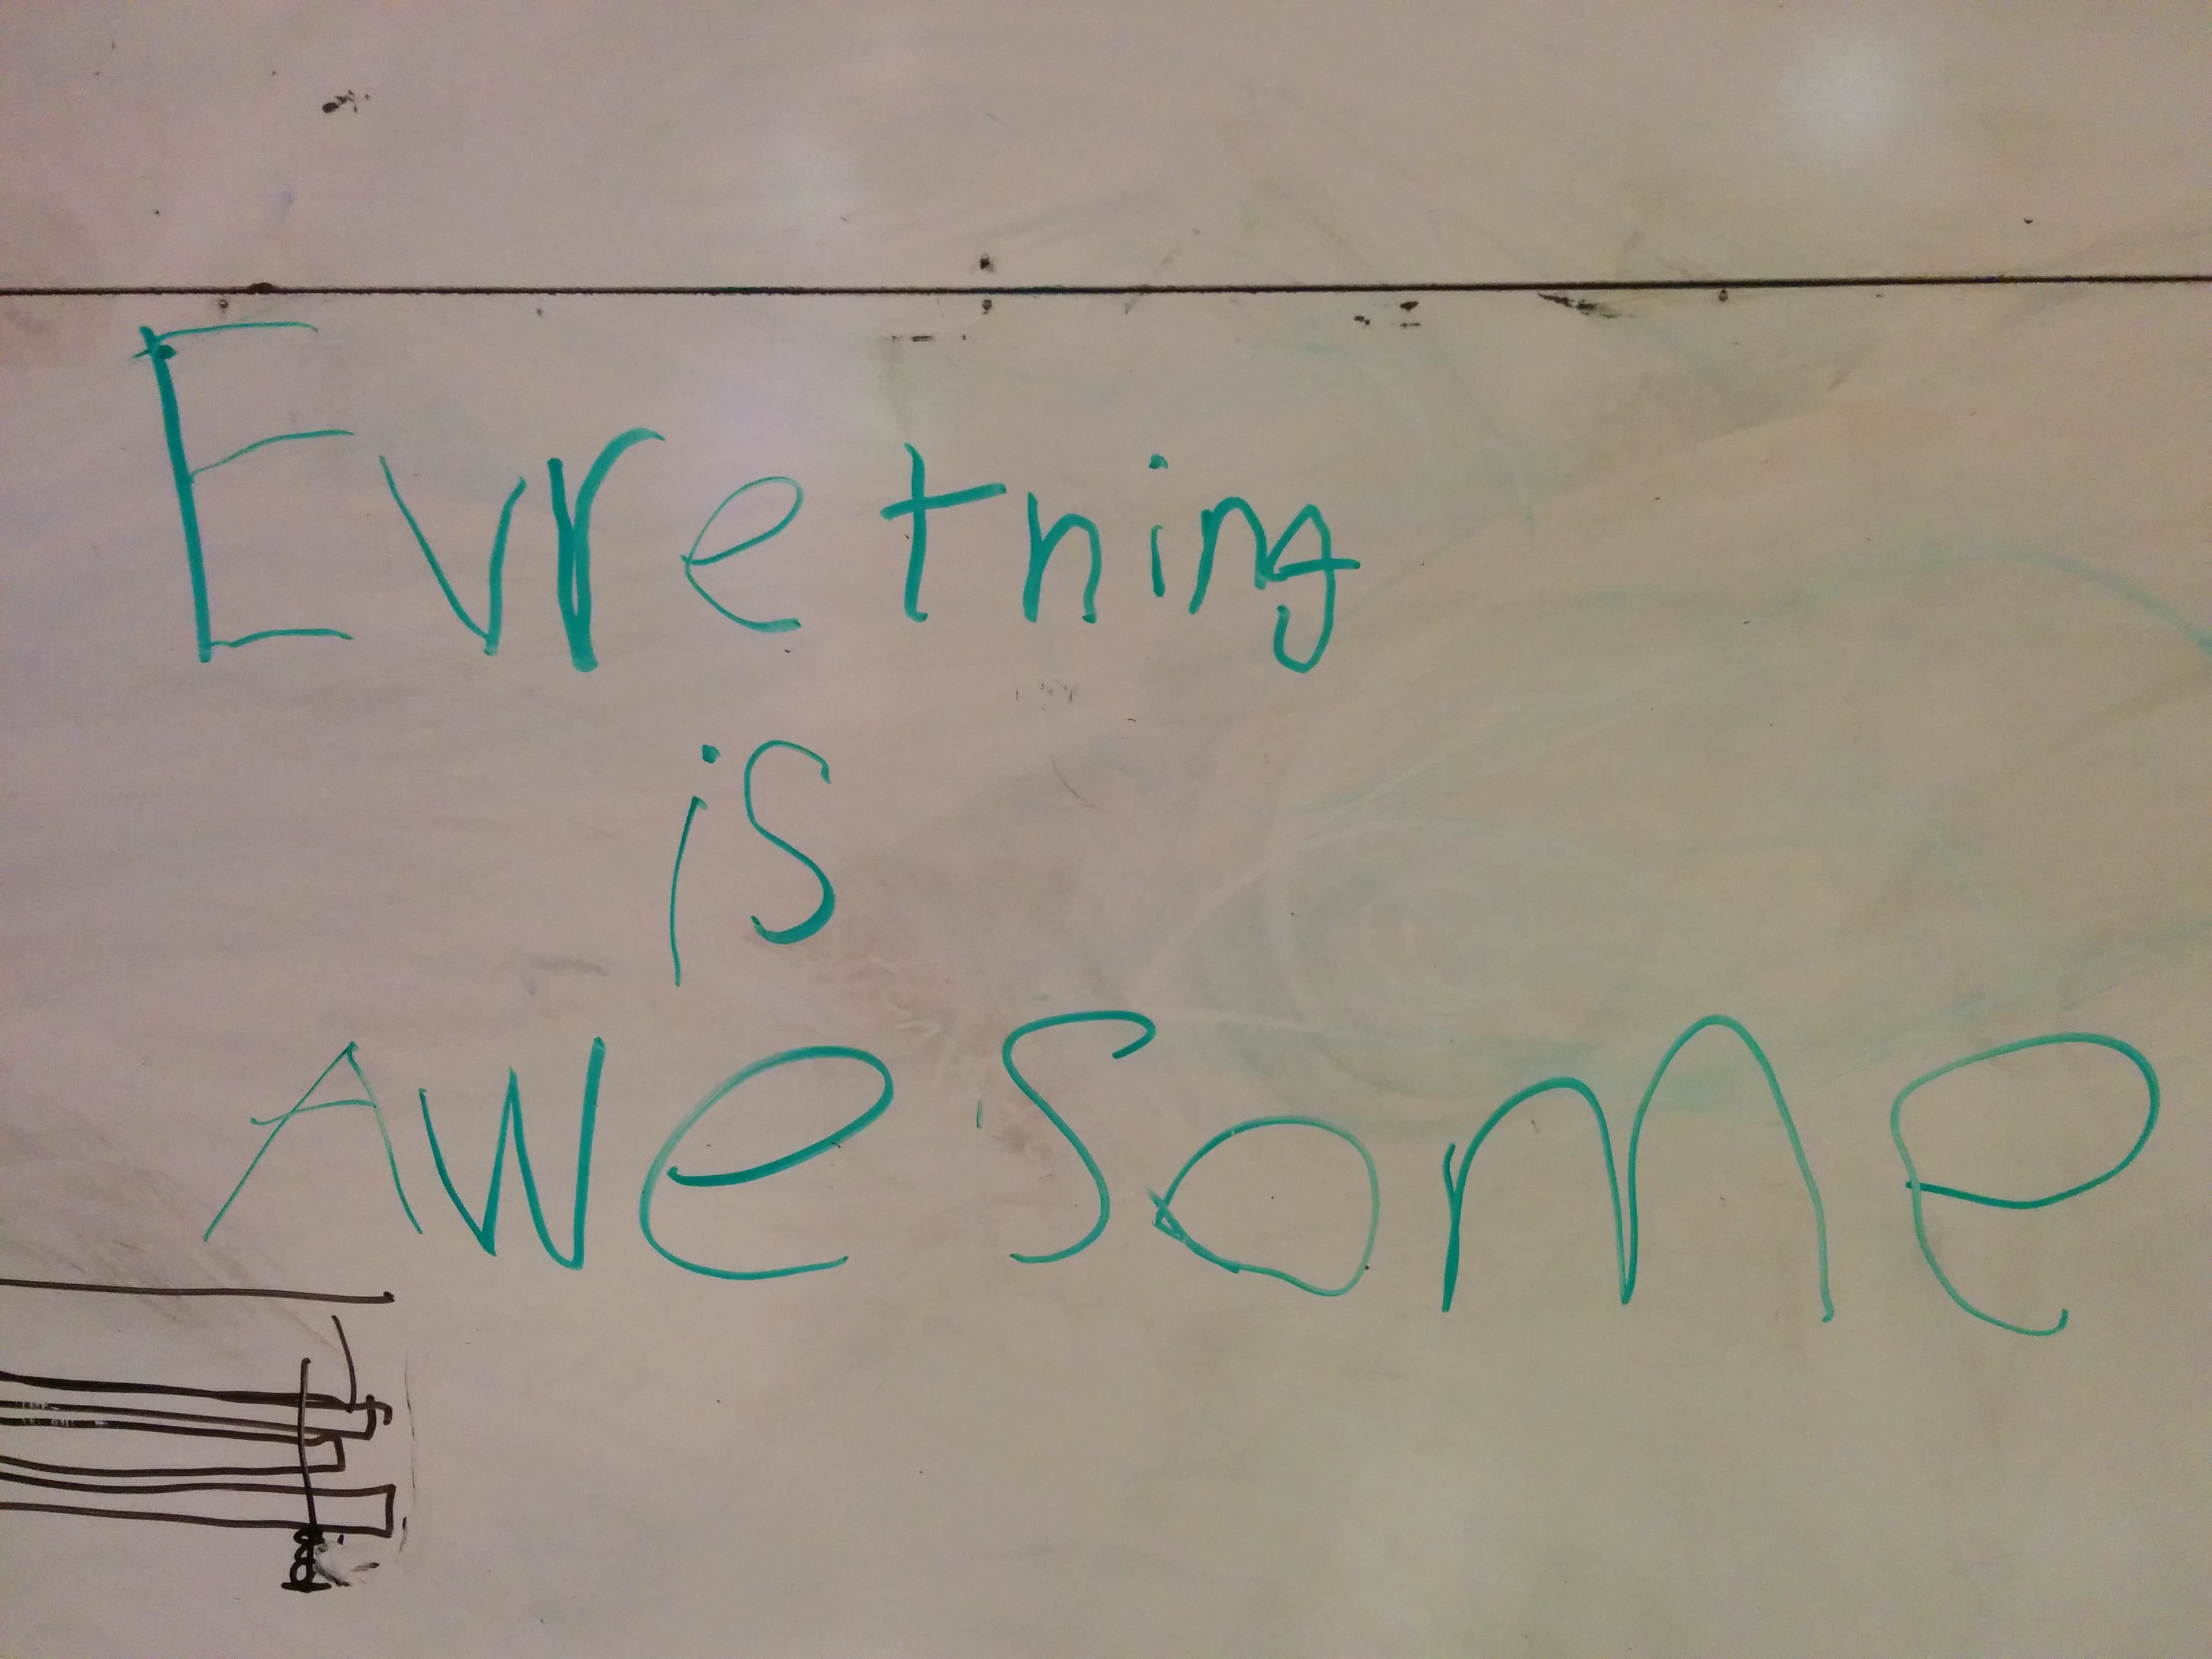 Evrething
is
Awesome